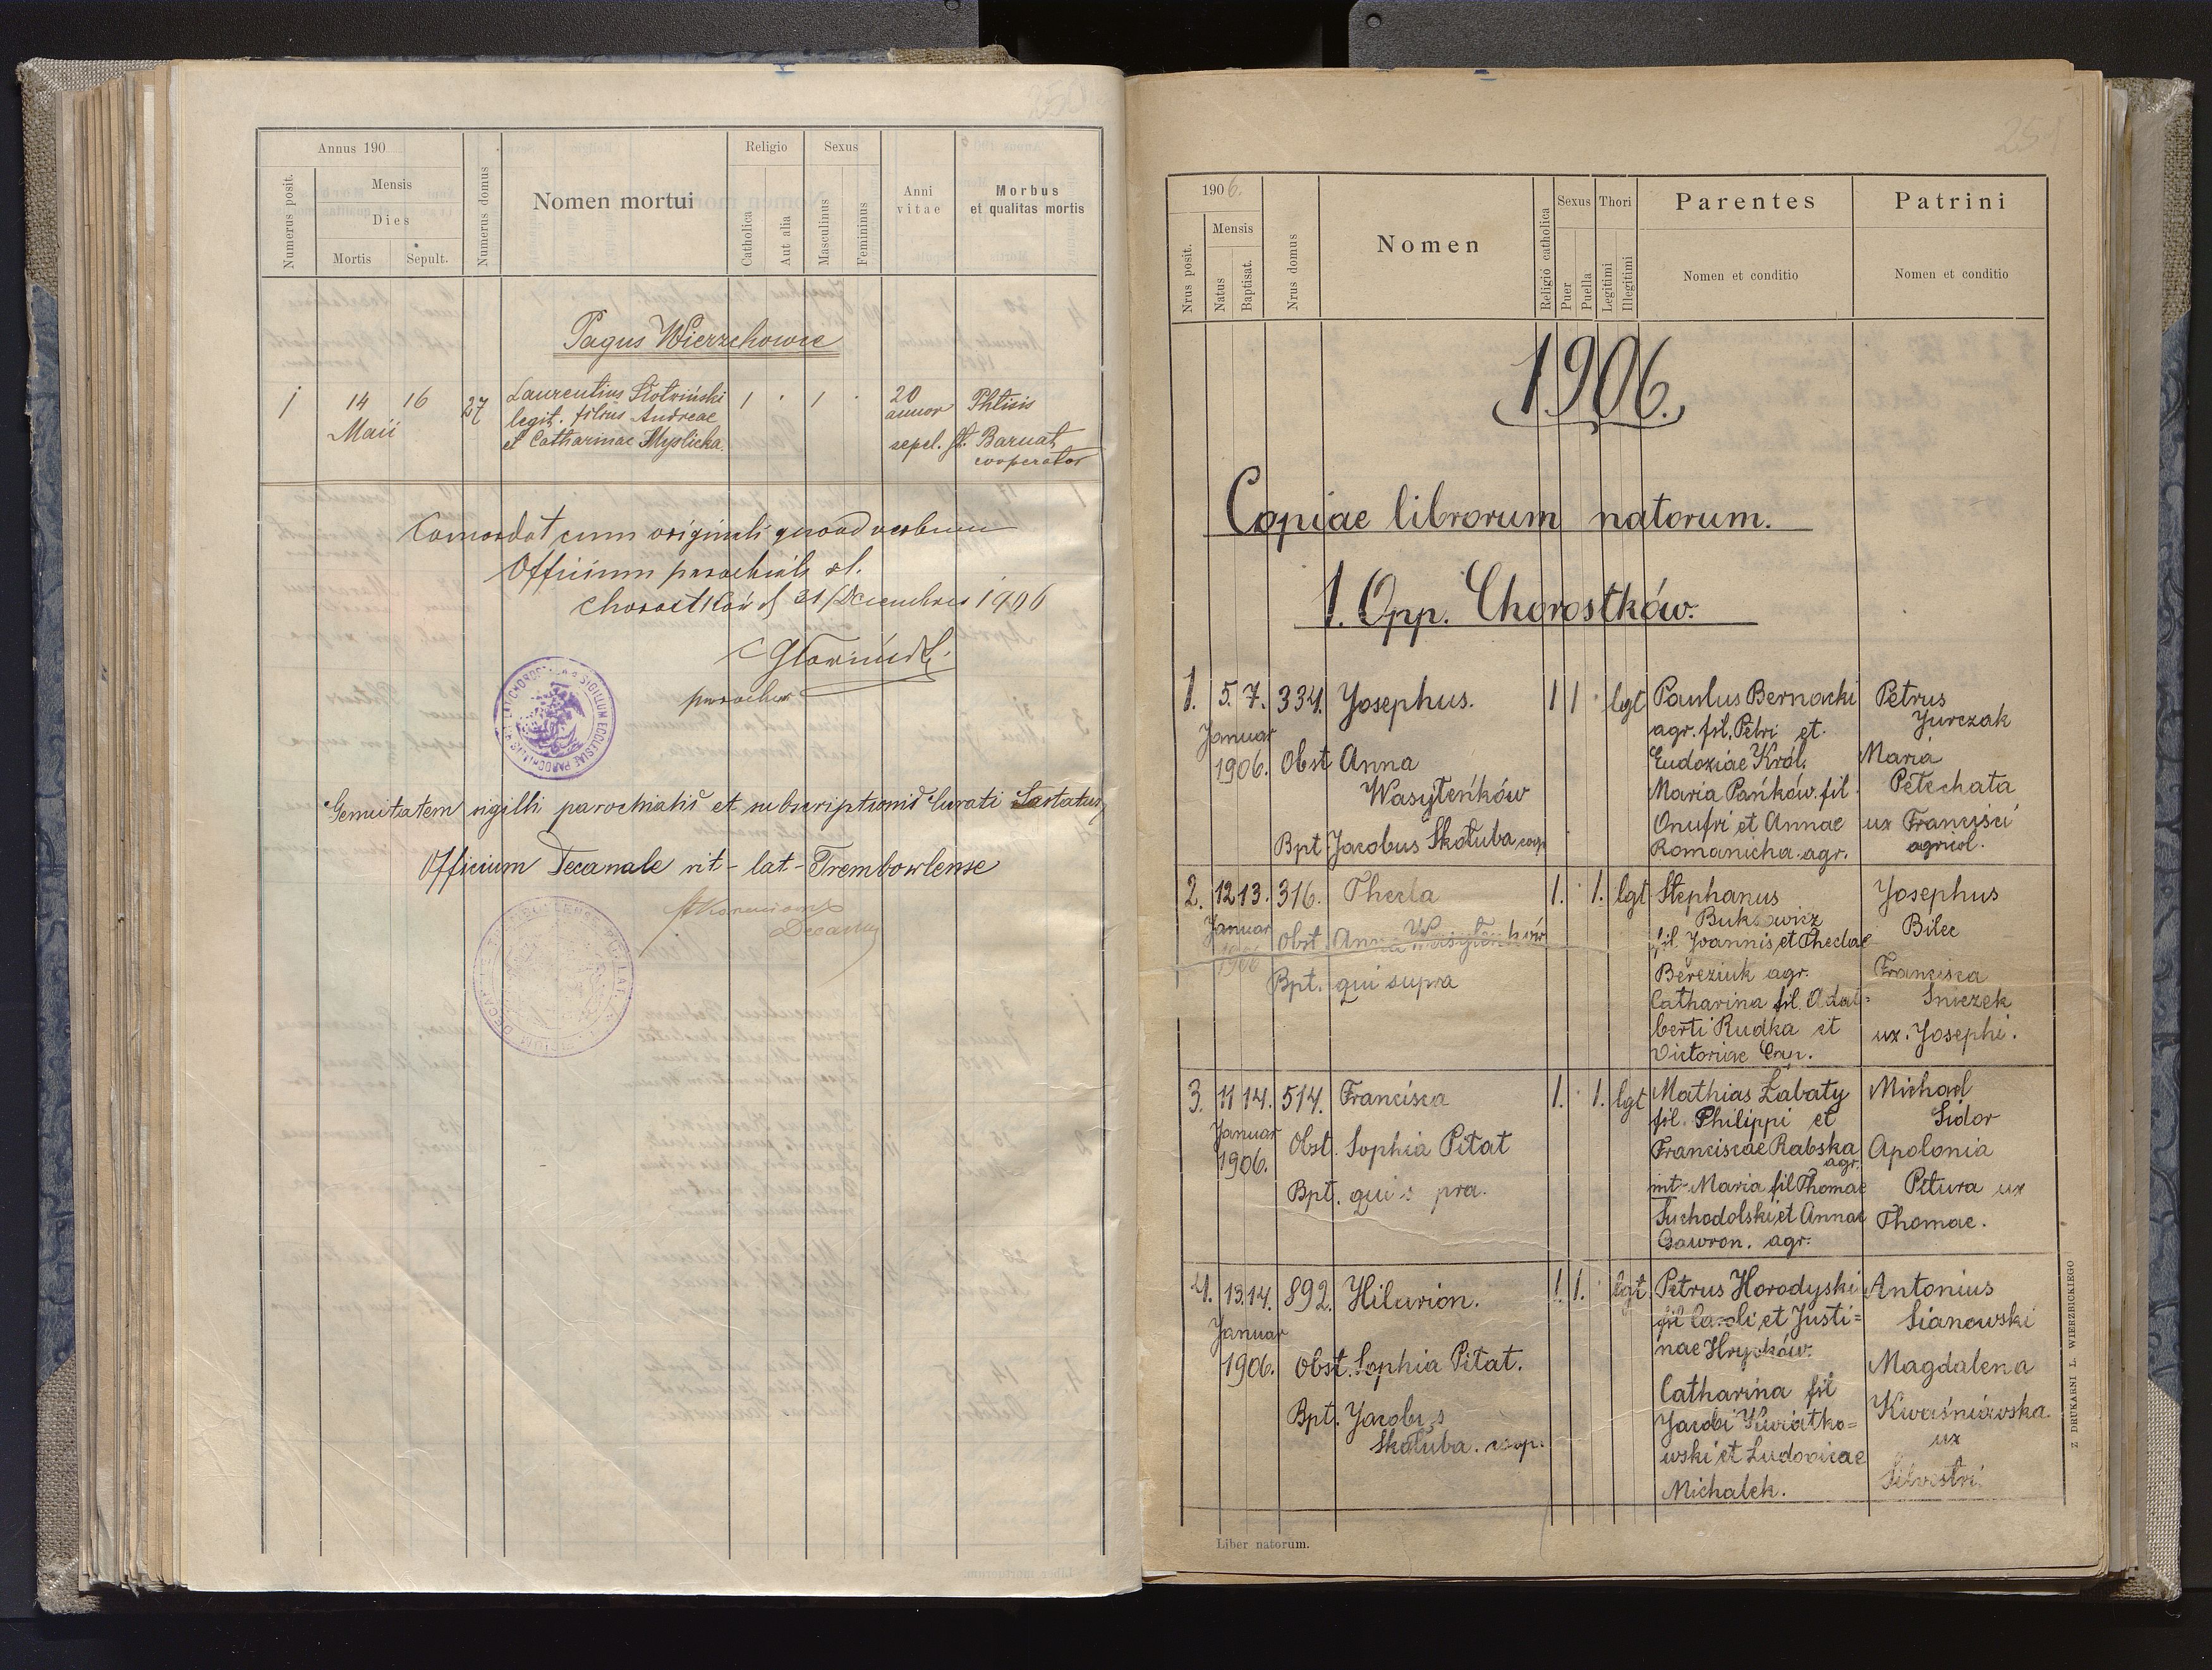 250
Annus 190
Numerus posit.
Mensis
Dies
Mortis
Sepult.
Numerus domus
Nomen mortui
Religio
Catholica
Aut alia
Sexus
Masculinus
Femininus
Anni
vitae
Morbus
et qualitas mortis
Pagus Wierzchowce
1 14 16 27 Laurentius Słotwiński 1 · 1 · 20 Phtisis
Maii legit. filius Andreae annor
et Catharinae Myslicka. sepel. St. Barnat
cooperator
Concordat cum originali quoad verbum
Officium parochiale rl.
Chorostków d 31/Decembris 1906
parochus
SIGILLUM ECCLESIAE PAROCHIALIS
Genuitatem sigilli parochialis et subscriptionis Curati
Officium Decanale rit-lat-Trembowlense
Decanus
251
1906.
Nrus posit.
Mensis
Natus
Baptisat.
Nrus domus
Nomen
Religio catholica
Sexus
Puer
Puella
Thori
Legitimi
Illegitimi
Parentes
Nomen et conditio
Patrini
Nomen et conditio
1906.
Copiae librorum natorum.
1. Opp. Chorostków.
1. 5. 7. 334. Josephus. 1 1 · lgt Paulus Bernacki Petrus
Januar agr. fil. Petri et Jurczak
1906. Obst Anna Eudoxiae Król. Maria
Wasyleńków Maria Pańków. fil Petechata
Onufri et Annae ux Francisci
Bpt Jacobus Skałuba coop Romanicha. agr. agricol.
2. 12 13. 316. Thecla 1. · 1. lgt Stephanus Josephus
Januar Buksowicz Bilec
1906 Obst. Anna Wasyleńków fil. Joannis et Theclae
Bpt. qui supra Bereziuk agr. Francisca
Catharina fil. Adal= Sniezek
berti Rudka et ux. Josephi.
Victoriae
3. 11 14. 514. Francisca 1. · 1. lgt Mathias Łabaty Michael
Januar fil. Philippi et Sidor
1906. Obst. Sophia Pitat Franciscae Rabska Apolonia
agr.
Bpt. qui s pra. mt-Maria fil Thomae Pitura ux
Suchodolski et Annae Thomae.
Gawron. agr.
4. 13. 14. 892. Hilarion. 1. 1. · lgt. Petrus Horodyski Antonius
Januar fil Caroli et Justi= Sianowski
nae Hryćków.
1906. Obst. Sophia Pitat. Magdalena
Catharina fil
Bpt. Jacobus Jacobi Kwiatko= Kwaśniowska
Skałuba. coop. wski et Ludovicae ux
Michalek. Silvestri.
Liber natorum.
Z DRUKARNI L. WIERZBICKIEGO